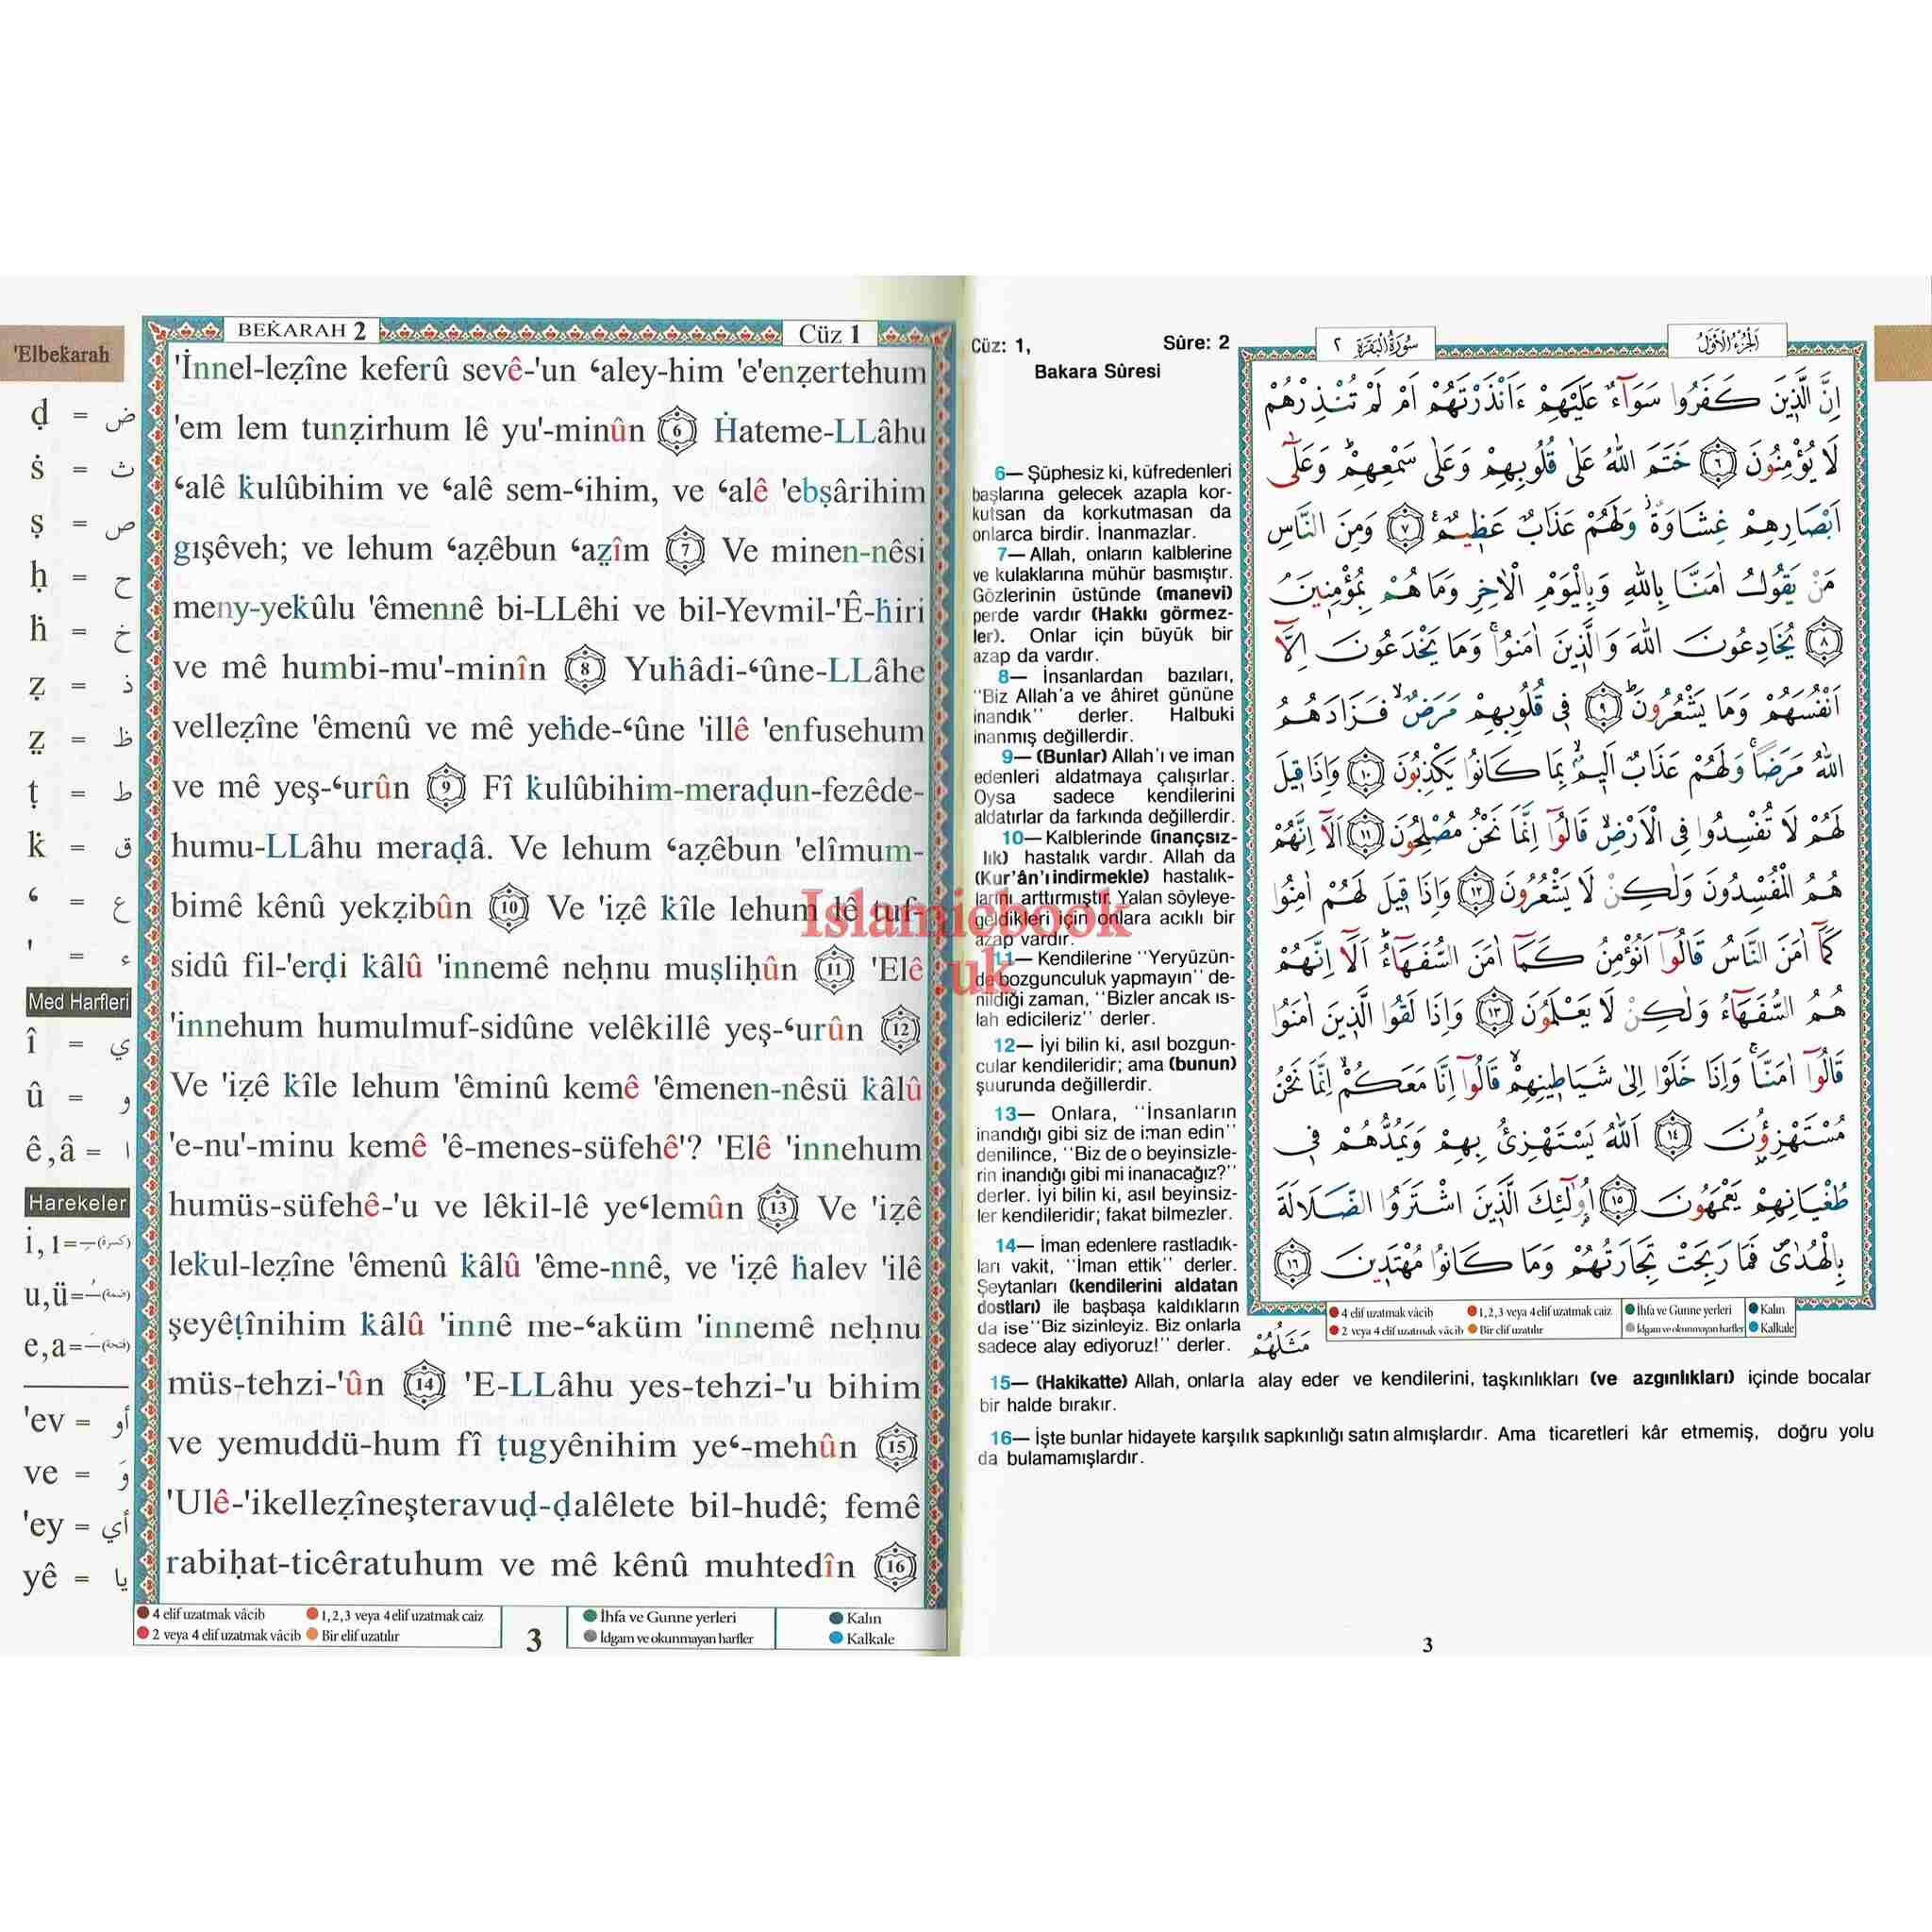 'Elbekarah
ḍ = ض
ṡ = ث
ṣ = ص
ḥ = ح
ḣ = خ
ẓ = ذ
ẓ̤ = ظ
ṭ = ط
k̇ = ق
ʻ = ع
' = ء
Med Harfleri
î = ي
û = و
ê,â = ا
Harekeler
i, ı=(كسرة)
u,ü=(ضمة)
e,a=(فتحة)
'ev = أو
ve = وَ
'ey = أي
yê = يا
BEK̇ARAH 2
Cüz 1
'İnnel-leẓîne keferû sevê-'un ʻaley-him 'e'enẓertehum
'em lem tunẓirhum lê yu'-minûn 6 Ḣateme-LLâhu
ʻalê k̇ulûbihim ve ʻalê sem-ʻihim, ve ʻalê 'ebṣârihim
gışêveh; ve lehum ʻaẓêbun ʻaẓ̤îm 7 Ve minen-nêsi
meny-yek̇ûlu 'êmennê bi-LLêhi ve bil-Yevmil-'Ê-ḣiri
ve mê humbi-mu'-minîn 8 Yuḣâdi-ʻûne-LLâhe
velleẓîne 'êmenû ve mê yeḣde-ʻûne 'illê 'enfusehum
ve mê yeş-ʻurûn 9 Fî k̇ulûbihim-meraḍun-fezêde-
humu-LLâhu meraḍâ. Ve lehum ʻaẓêbun 'elîmum-
bimê kênû yekẓibûn 10 Ve 'iẓê k̇île lehum lê tuf-
sidû fil-'erḍi k̇âlû 'innemê neḥnu muṣliḥûn 11 'Elê
'innehum humulmuf-sidûne velêkillê yeş-ʻurûn 12
Ve 'iẓê k̇île lehum 'êminû kemê 'êmenen-nêsü k̇âlû
'e-nu'-minu kemê 'ê-menes-süfehê'? 'Elê 'innehum
humüs-süfehê-'u ve lêkil-lê yeʻlemûn 13 Ve 'iẓê
lek̇ul-leẓîne 'êmenû k̇âlû 'ême-nnê, ve 'iẓê ḣalev 'ilê
şeyêṭînihim k̇âlû 'innê me-ʻaküm 'innemê neḥnu
müs-tehzi-'ûn 14 'E-LLâhu yes-tehzi-'u bihim
ve yemuddü-hum fî ṭugyênihim yeʻ-mehûn 15
'Ulê-'ikelleẓîneşteravuḍ-ḍalêlete bil-hudê; femê
rabiḥat-ticêratuhum ve mê kênû muhtedîn 16
4 elif uzatmak vâcib
1, 2, 3 veya 4 elif uzatmak caiz
2 veya 4 elif uzatmak vâcib
Bir elif uzatılır
3
İhfa ve Gunne yerleri
İdgam ve okunmayan harfler
Kalın
Kalkale
Cüz: 1,
Sûre: 2
Bakara Sûresi
6— Şüphesiz ki, küfredenleri
başlarına gelecek azapla kor-
kutsan da korkutmasan da
onlarca birdir. İnanmazlar.
7— Allah, onların kalblerine
ve kulaklarına mühür basmıştır.
Gözlerinin üstünde (manevi)
perde vardır (Hakkı görmez-
ler). Onlar için büyük bir
azap da vardır.
8— İnsanlardan bazıları,
''Biz Allah'a ve âhiret gününe
inandık'' derler. Halbuki
inanmış değillerdir.
9— (Bunlar) Allah'ı ve iman
edenleri aldatmaya çalışırlar.
Oysa sadece kendilerini
aldatırlar da farkında değillerdir.
10— Kalblerinde (inançsız-
lık) hastalık vardır. Allah da
(Kur'ân'ı indirmekle) hastalık-
larını arttırmıştır. Yalan söyleye-
geldikleri için onlara acıklı bir
azap vardır.
11— Kendilerine ''Yeryüzün-
de bozgunculuk yapmayın'' de-
nildiği zaman, ''Bizler ancak ıs-
lah edicileriz'' derler.
12— İyi bilin ki, asıl bozgun-
cular kendileridir; ama (bunun)
şuurunda değillerdir.
13— Onlara, ''İnsanların
inandığı gibi siz de iman edin''
denilince, ''Biz de o beyinsizle-
rin inandığı gibi mi inanacağız?''
derler. İyi bilin ki, asıl beyinsiz-
ler kendileridir; fakat bilmezler.
14— İman edenlere rastladık-
ları vakit, ''İman ettik'' derler.
Şeytanları (kendilerini aldatan
dostları) ile başbaşa kaldıkların
da ise''Biz sizinleyiz. Biz onlarla
sadece alay ediyoruz!'' derler.
15— (Hakikatte) Allah, onlarla alay eder ve kendilerini, taşkınlıkları (ve azgınlıkları) içinde bocalar
bir halde bırakır.
16— İşte bunlar hidayete karşılık sapkınlığı satın almışlardır. Ama ticaretleri kâr etmemiş, doğru yolu
da bulamamışlardır.
اَلْجُزْءُ الْاَوَّلُ
سُورَةُ الْبَقَرَةِ ٢
اِنَّ الَّذِينَ كَفَرُوا سَوَآءٌ عَلَيْهِمْ ءَاَنْذَرْتَهُمْ اَمْ لَمْ تُنْذِرْهُمْ
لَا يُؤْمِنُونَ ٦ خَتَمَ اللّٰهُ عَلٰى قُلُوبِهِمْ وَعَلٰى سَمْعِهِمْ وَعَلٰٓى
اَبْصَارِهِمْ غِشَاوَةٌ وَلَهُمْ عَذَابٌ عَظِيمٌ ٧ وَمِنَ النَّاسِ
مَنْ يَقُولُ اٰمَنَّا بِاللّٰهِ وَبِالْيَوْمِ الْاٰخِرِ وَمَا هُمْ بِمُؤْمِنِينَ
٨ يُخَادِعُونَ اللّٰهَ وَالَّذِينَ اٰمَنُوا وَمَا يَخْدَعُونَ اِلَّٓا
اَنْفُسَهُمْ وَمَا يَشْعُرُونَ ٩ فِى قُلُوبِهِمْ مَرَضٌ فَزَادَهُمُ
اللّٰهُ مَرَضًا وَلَهُمْ عَذَابٌ اَلِيمٌ بِمَا كَانُوا يَكْذِبُونَ ١٠ وَاِذَا قِيلَ
لَهُمْ لَا تُفْسِدُوا فِى الْاَرْضِ قَالُٓوا اِنَّمَا نَحْنُ مُصْلِحُونَ ١١ اَلَٓا اِنَّهُمْ
هُمُ الْمُفْسِدُونَ وَلٰكِنْ لَا يَشْعُرُونَ ١٢ وَاِذَا قِيلَ لَهُمْ اٰمِنُوا
كَمَٓا اٰمَنَ النَّاسُ قَالُٓوا اَنُؤْمِنُ كَمَٓا اٰمَنَ السُّفَهَٓاءُ اَلَٓا اِنَّهُمْ
هُمُ السُّفَهَٓاءُ وَلٰكِنْ لَا يَعْلَمُونَ ١٣ وَاِذَا لَقُوا الَّذِينَ اٰمَنُوا
قَالُٓوا اٰمَنَّا وَاِذَا خَلَوْا اِلٰى شَيَاطِينِهِمْ قَالُٓوا اِنَّا مَعَكُمْ اِنَّمَا نَحْنُ
مُسْتَهْزِؤُنَ ١٤ اَللّٰهُ يَسْتَهْزِئُ بِهِمْ وَيَمُدُّهُمْ فِى
طُغْيَانِهِمْ يَعْمَهُونَ ١٥ اُولٰٓئِكَ الَّذِينَ اشْتَرَوُا الضَّلَالَةَ
بِالْهُدٰى فَمَا رَبِحَتْ تِجَارَتُهُمْ وَمَا كَانُوا مُهْتَدِينَ ١٦
4 elif uzatmak vâcib
1, 2, 3 veya 4 elif uzatmak caiz
2 veya 4 elif uzatmak vâcib
Bir elif uzatılır
İhfa ve Gunne yerleri
İdgam ve okunmayan harfler
Kalın
Kalkale
مَثَلُهُمْ
3
Islamicbook
.uk